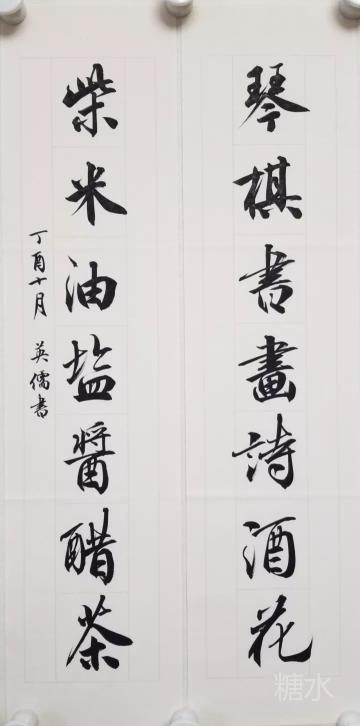 琴棋書畫詩酒花
柴米油盐醬醋茶
丁酉十月 英儒書
糖水